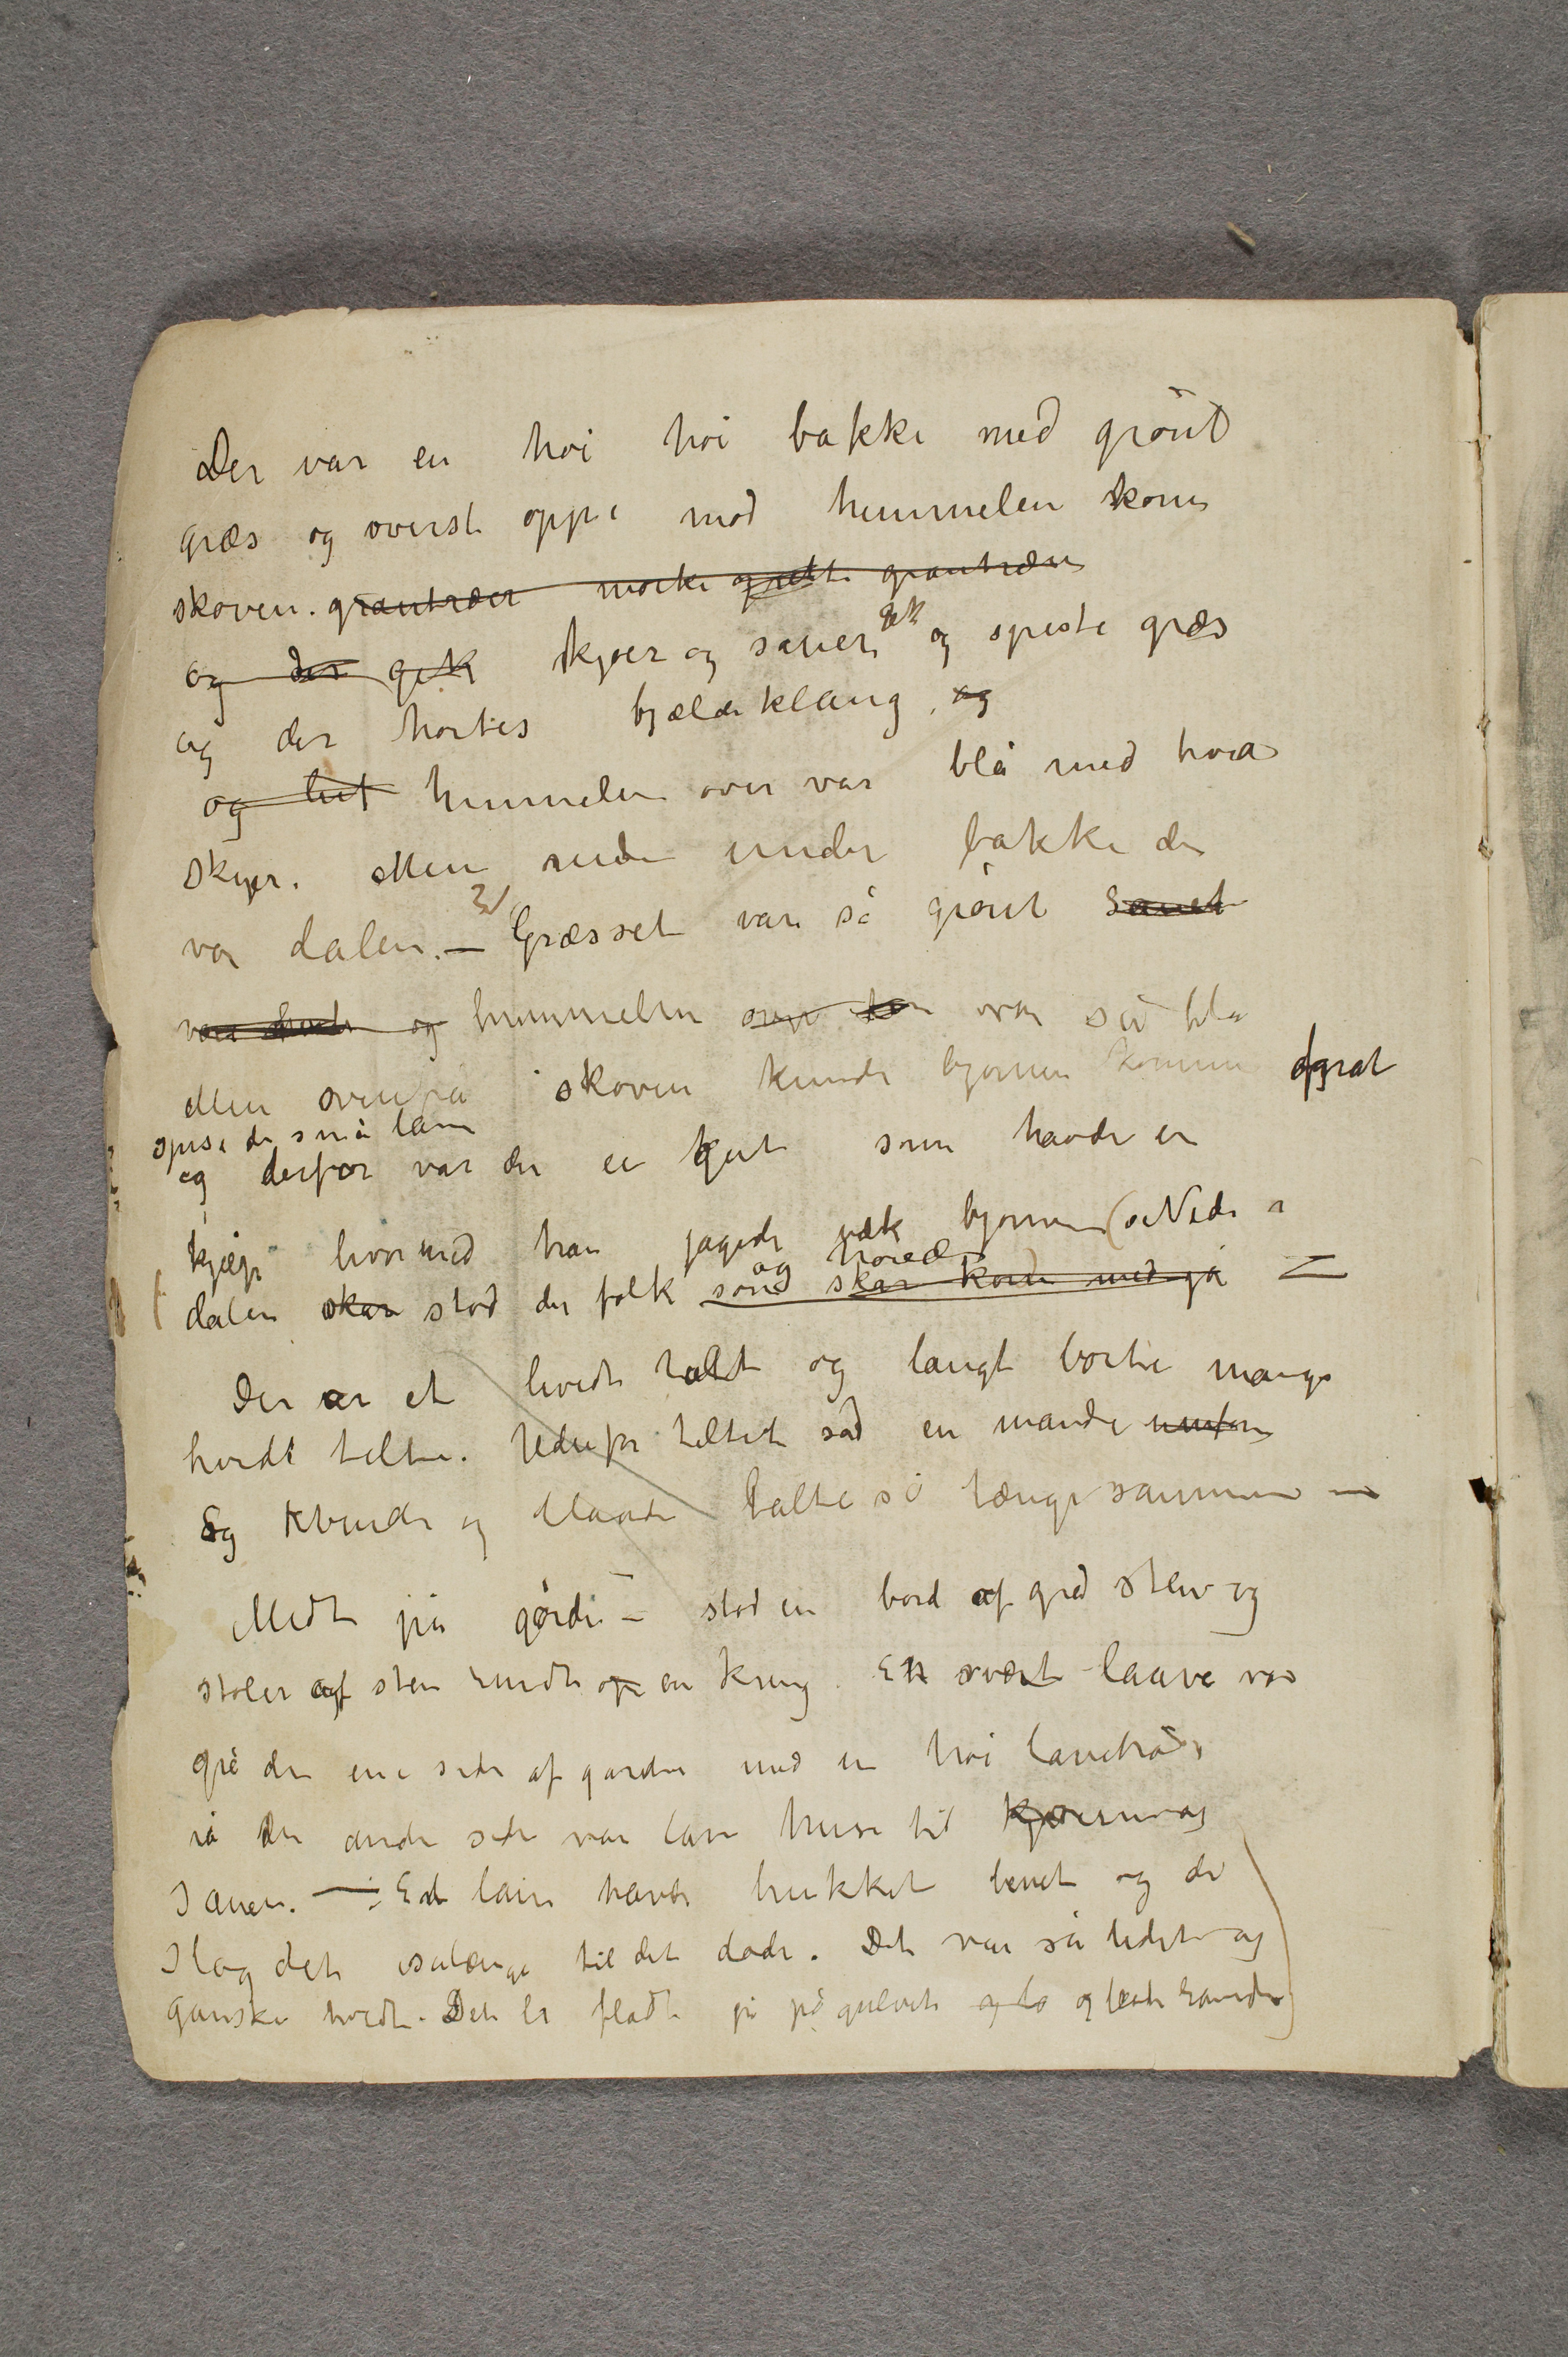 Der var en høi høi bakke med grønt
græs og øverst oppe mod himmelen kom
skoven. grantræer mørke grantræer
og der gik kjøer og sauer gik og spiste græs
og der hørtes bjælleklang, og
og lut himmelen over var blå med hvide
skyer. Men nede under bakke der
var dalen. — Græsset var så grønt
og himmelen var så blå
Men ovenfra skoven kunde bjørnen komme
spise de små lam
og derfor var der en gut som havde en
kjæp hvormed han jagede væk bjørnen (Nede i
dalen skar stod der folk som og skar korn med på
Der er et hvidt telt og langt borte mange
hvidt telte. Udenfor teltet sad en mand
og kvinde og Mand talte så længe sammen —
Midt på gården — stod en bord af grå sten og
stoler af sten rundt om en kring. En svært laave var
på den ene side af gården med en høi lavebrå
på den andre side var lave huse til kjøerne og
sauen. — Et lam havde brukket benet og de
slog det salænge til det døde. Det var så lidet og
ganske hvidt. Det lå fladt på på gulvet og lo og